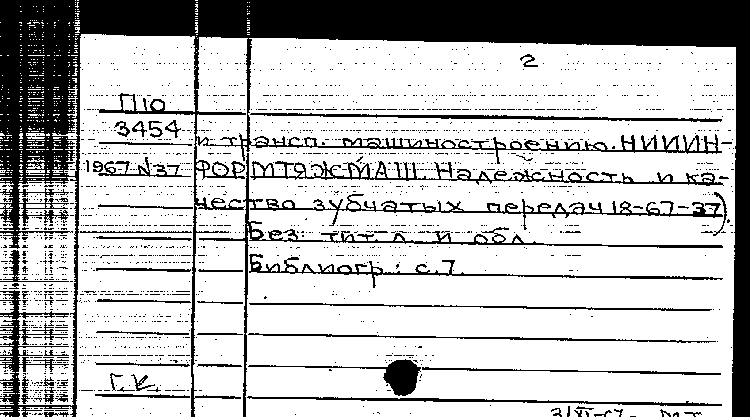 2
П10
3454 и трансп. машиностроению. НИИИН-
1967 N37 ФОРМТЯЖМАШ. Надежность и ка-
чество зубчатых передач 18-67-37).
Без тит. л. и обл.
Библиогр.: с. 7.
Г. К.